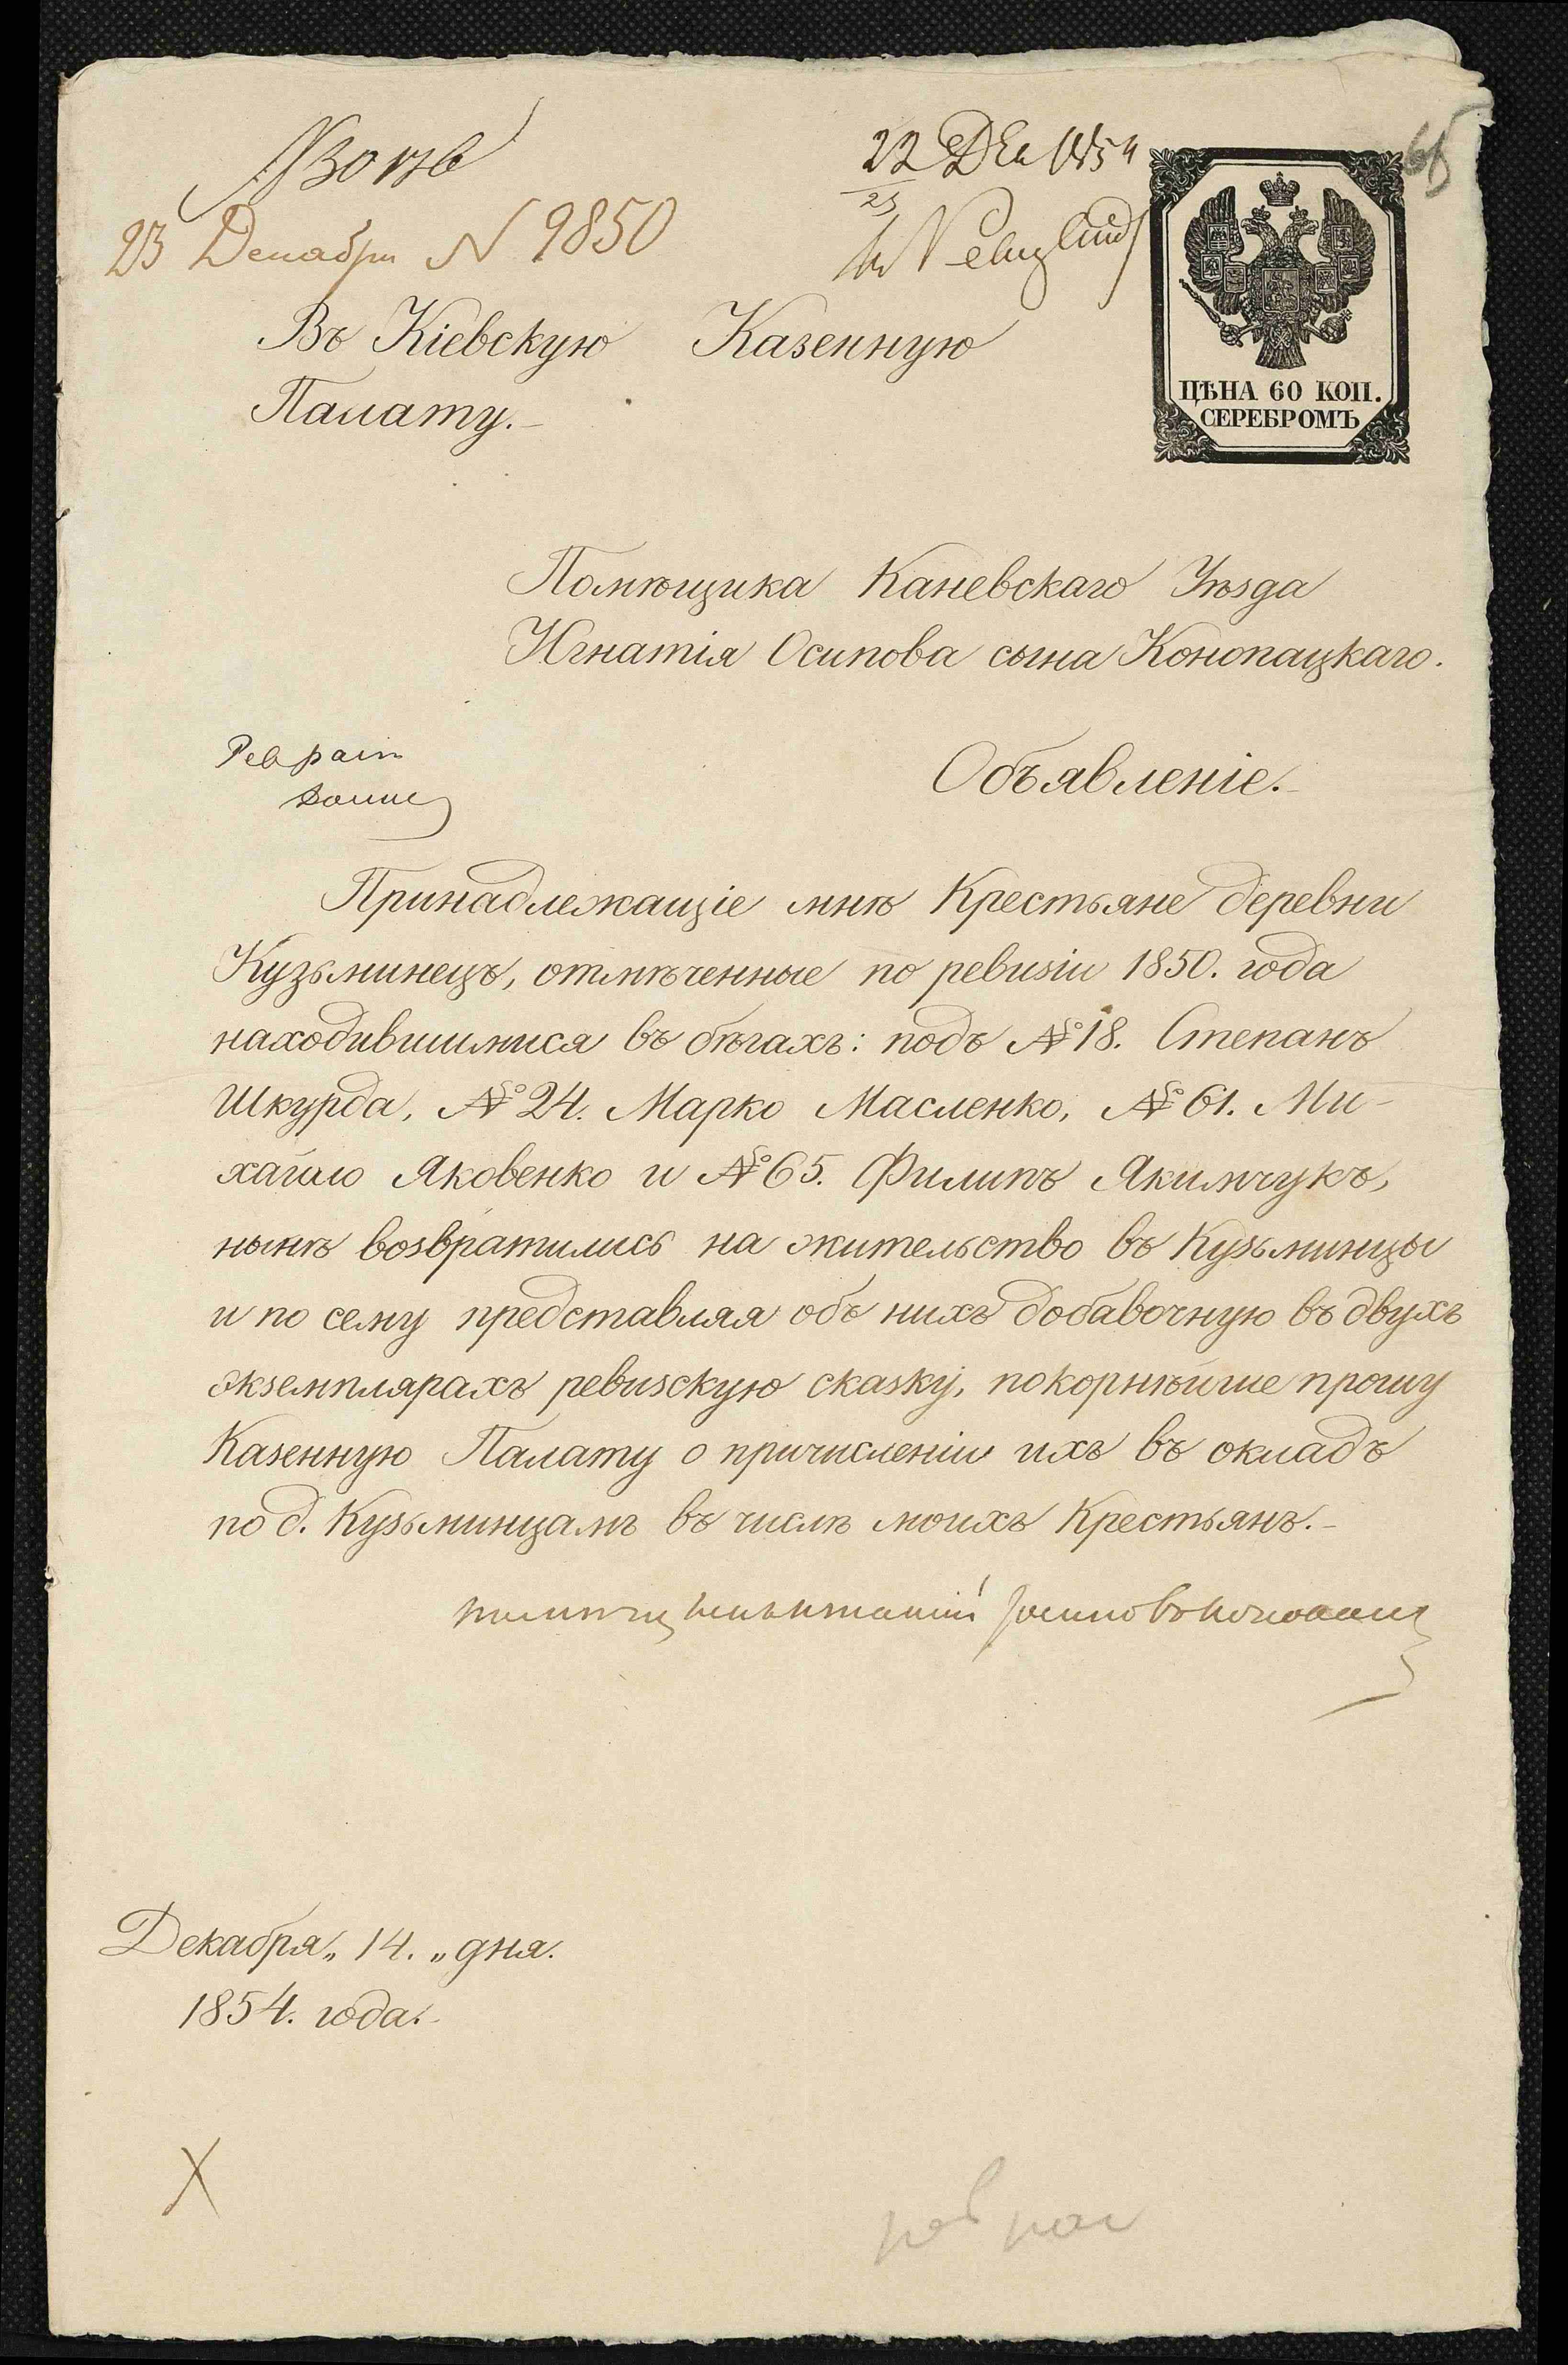 22 Дек 1854
23
23 Декабря N 9850
Въ Кіевскую Казенную
Палату.-
ЦѢНА 60 КОП.
СЕРЕБРОМЪ
Помѣщика Каневскаго Уѣзда
Игнатія Осипова сына Конопацкаго.
Объявленіе.-
Принадлежащіе мнѣ Крестьяне деревни
Кузьминецъ, отмѣченные по ревизіи 1850. года
находившимися въ бѣгахъ: подъ № 18. Степанъ
Шкурда, № 24. Марко Масленко, № 61. Ми-
хайло Яковенко и № 65. Филипъ Якимчукъ,
нынѣ возвратились на жительство въ Кузьминцы
и по сему представляя объ нихъ добавочную въ двухъ
экземплярахъ ревизскую сказку, покорнѣйше прошу
Казенную Палату о причисленіи ихъ въ окладъ
по д. Кузьминцамъ въ числѣ моихъ Крестьянъ.-
Декабря „ 14. „ дня.
1854. года.-